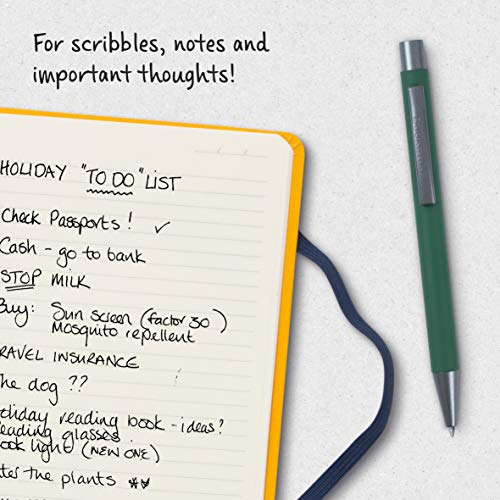 For scribbles, notes and
important thoughts!
HOLIDAY "TO DO" LIST
Check Passports! ✓
Cash - go to bank
STOP MILK
Buy: Sun screen (factor 30)
Mosquito repellent
RAVEL INSURANCE
he dog ??
thday reading book - ideas?
eading glasses
ook light (NEW ONE)
ter the plants